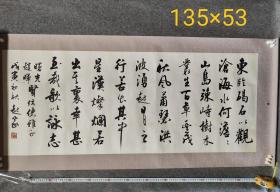 135×53
東臨碣石以觀
滄海水何澹澹
山島竦峙樹木
叢生百草豐茂
秋風蕭瑟洪
波湧起日月之
行若出其中
星漢燦爛若
出其裏幸甚
至哉歌以詠志
戊寅初秋